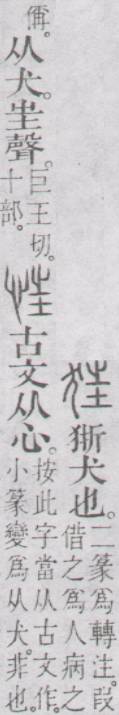 狂狾犬也。二篆爲轉注。叚
借之爲人病之
偁。从犬㞷聲。巨王切。
十部。
忹古文从心。按此字當从古文作。
小篆變爲从犬。非也。